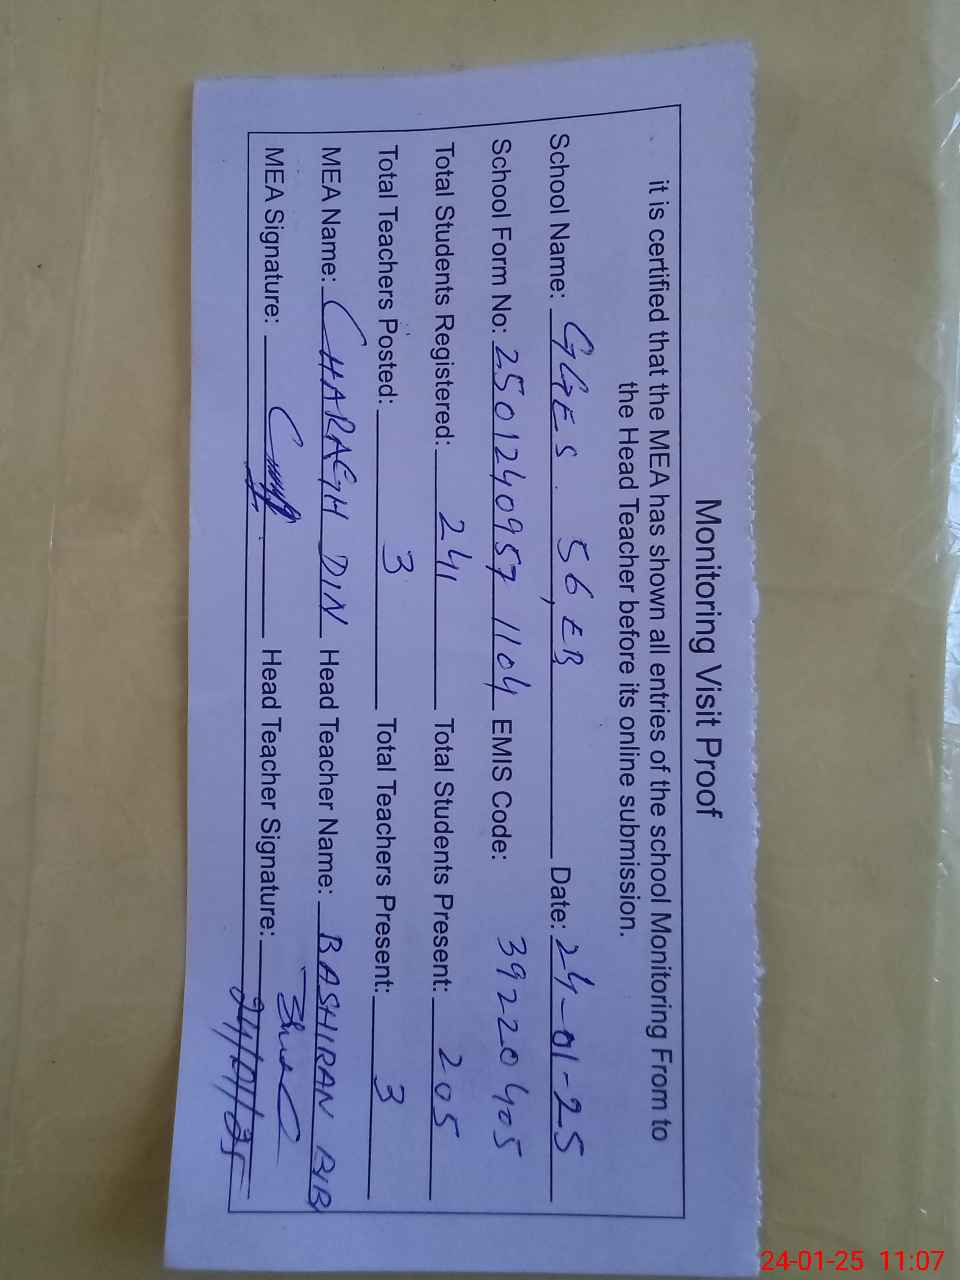 Monitoring Visit Proof
it is certified that the MEA has shown all entries of the school Monitoring From to
the Head Teacher before its online submission.
School Name: GGES. 56, EB Date: 24-01-25
School Form No: 2501240957 1104 EMIS Code: 39220405
Total Students Registered: 241 Total Students Present: 205
Total Teachers Posted: 3 Total Teachers Present: 3
MEA Name: CHARAGH DIN Head Teacher Name: BASHIRAN BIB
MEA Signature: Head Teacher Signature:
24/01/25
24-01-25 11:07